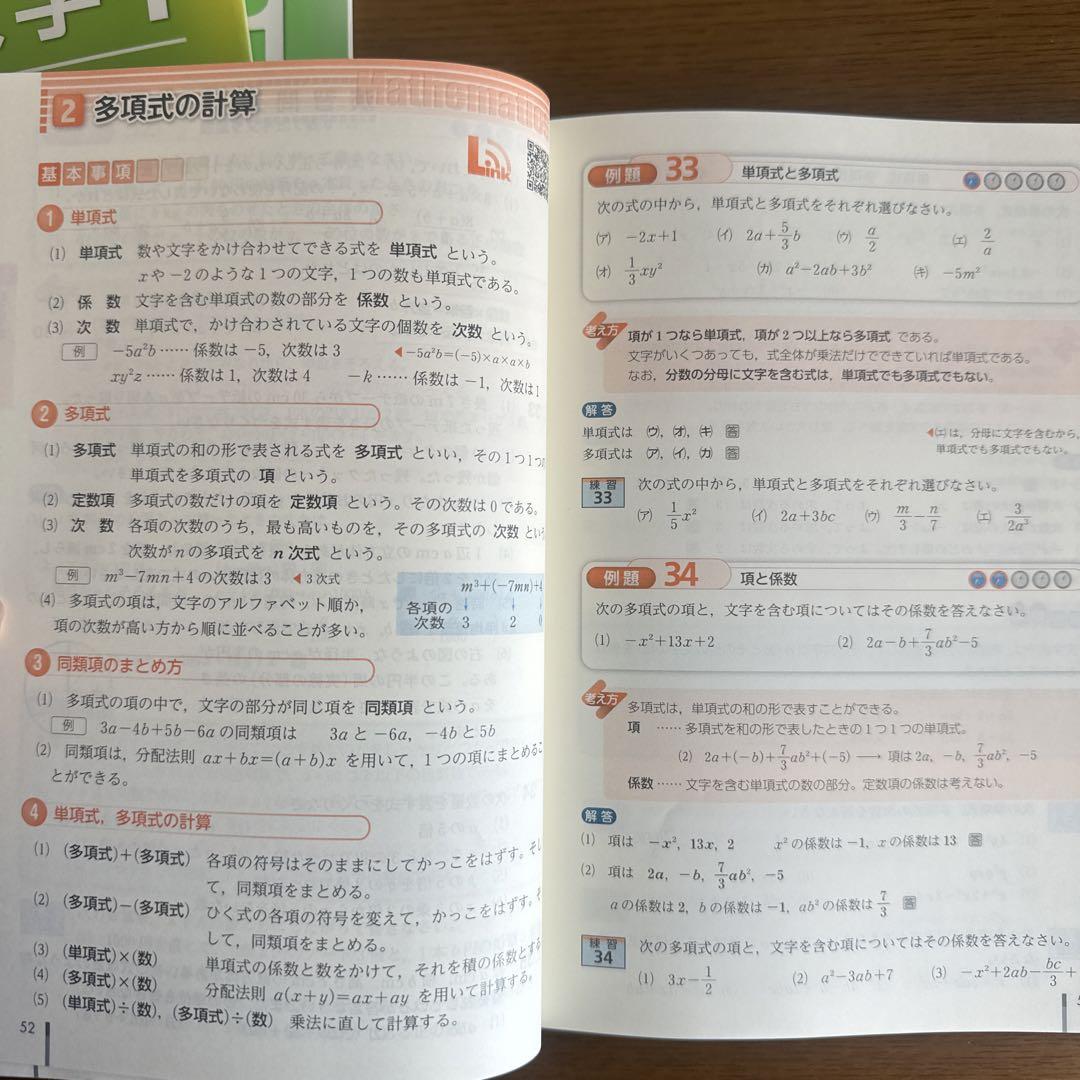 Mathematic
2 多項式の計算
基本事項
Link
1 単項式
(1) 単項式 数や文字をかけ合わせてできる式を 単項式 という。
xや−2のような1つの文字，1つの数も単項式である。
(2) 係数 文字を含む単項式の数の部分を 係数 という。
(3) 次数 単項式で，かけ合わされている文字の個数を 次数 という。
例 −5a²b …… 係数は −5，次数は 3 ◀−5a²b=(−5)×a×a×b
xy²z …… 係数は 1，次数は 4 −k …… 係数は −1，次数は 1
2 多項式
(1) 多項式 単項式の和の形で表される式を 多項式 といい，その1つ1つの
単項式を多項式の 項 という。
(2) 定数項 多項式の数だけの項を 定数項 という。その次数は 0 である。
(3) 次数 各項の次数のうち，最も高いものを，その多項式の 次数 とい
次数が n の多項式を n 次式 という。
例 m³−7mn+4 の次数は 3 ◀3 次式
m³+(−7mn)+4
各項の
次数 3 2 0
(4) 多項式の項は，文字のアルファベット順か，
項の次数が高い方から順に並べることが多い。
3 同類項のまとめ方
(1) 多項式の項の中で，文字の部分が同じ項を 同類項 という。
例 3a−4b+5b−6a の同類項は 3a と −6a，−4b と 5b
(2) 同類項は，分配法則 ax+bx=(a+b)x を用いて，1つの項にまとめるこ
とができる。
4 単項式，多項式の計算
(1) (多項式)+(多項式) 各項の符号はそのままにしてかっこをはずす。そし
て，同類項をまとめる。
(2) (多項式)−(多項式) ひく式の各項の符号を変えて，かっこをはずす。そ
して，同類項をまとめる。
(3) (単項式)×(数) 単項式の係数と数をかけて，それを積の係数とする。
(4) (多項式)×(数) 分配法則 a(x+y)=ax+ay を用いて計算する。
(5) (単項式)÷(数)，(多項式)÷(数) 乗法に直して計算する。
52
例題 33 単項式と多項式
次の式の中から，単項式と多項式をそれぞれ選びなさい。
(ア) −2x+1 (イ) 2a+5/3 b (ウ) a/2 (エ) 2/a
(オ) 1/3 xy² (カ) a²−2ab+3b² (キ) −5m²
考え方 項が1つなら単項式，項が2つ以上なら多項式 である。
文字がいくつあっても，式全体が乗法だけでできていれば単項式である。
なお，分数の分母に文字を含む式は，単項式でも多項式でもない。
解答
単項式は (ウ)，(オ)，(キ) 答 ◀(エ)は，分母に文字を含むから，
多項式は (ア)，(イ)，(カ) 答 単項式でも多項式でもない。
練習 33 次の式の中から，単項式と多項式をそれぞれ選びなさい。
(ア) 1/5 x² (イ) 2a+3bc (ウ) m/3−n/7 (エ) 3/2a³
例題 34 項と係数
次の多項式の項と，文字を含む項についてはその係数を答えなさい。
(1) −x²+13x+2 (2) 2a−b+7/3 ab²−5
考え方 多項式は，単項式の和の形で表すことができる。
項 …… 多項式を和の形で表したときの1つ1つの単項式。
(2) 2a+(−b)+7/3 ab²+(−5) ⟶ 項は 2a，−b，7/3 ab²，−5
係数 …… 文字を含む単項式の数の部分。定数項の係数は考えない。
解答
(1) 項は −x²，13x，2 x² の係数は −1，x の係数は 13 答
(2) 項は 2a，−b，7/3 ab²，−5
a の係数は 2，b の係数は −1，ab² の係数は 7/3 答
練習 34 次の多項式の項と，文字を含む項についてはその係数を答えなさい。
(1) 3x−1/2 (2) a²−3ab+7 (3) −x²+2ab−bc/3+